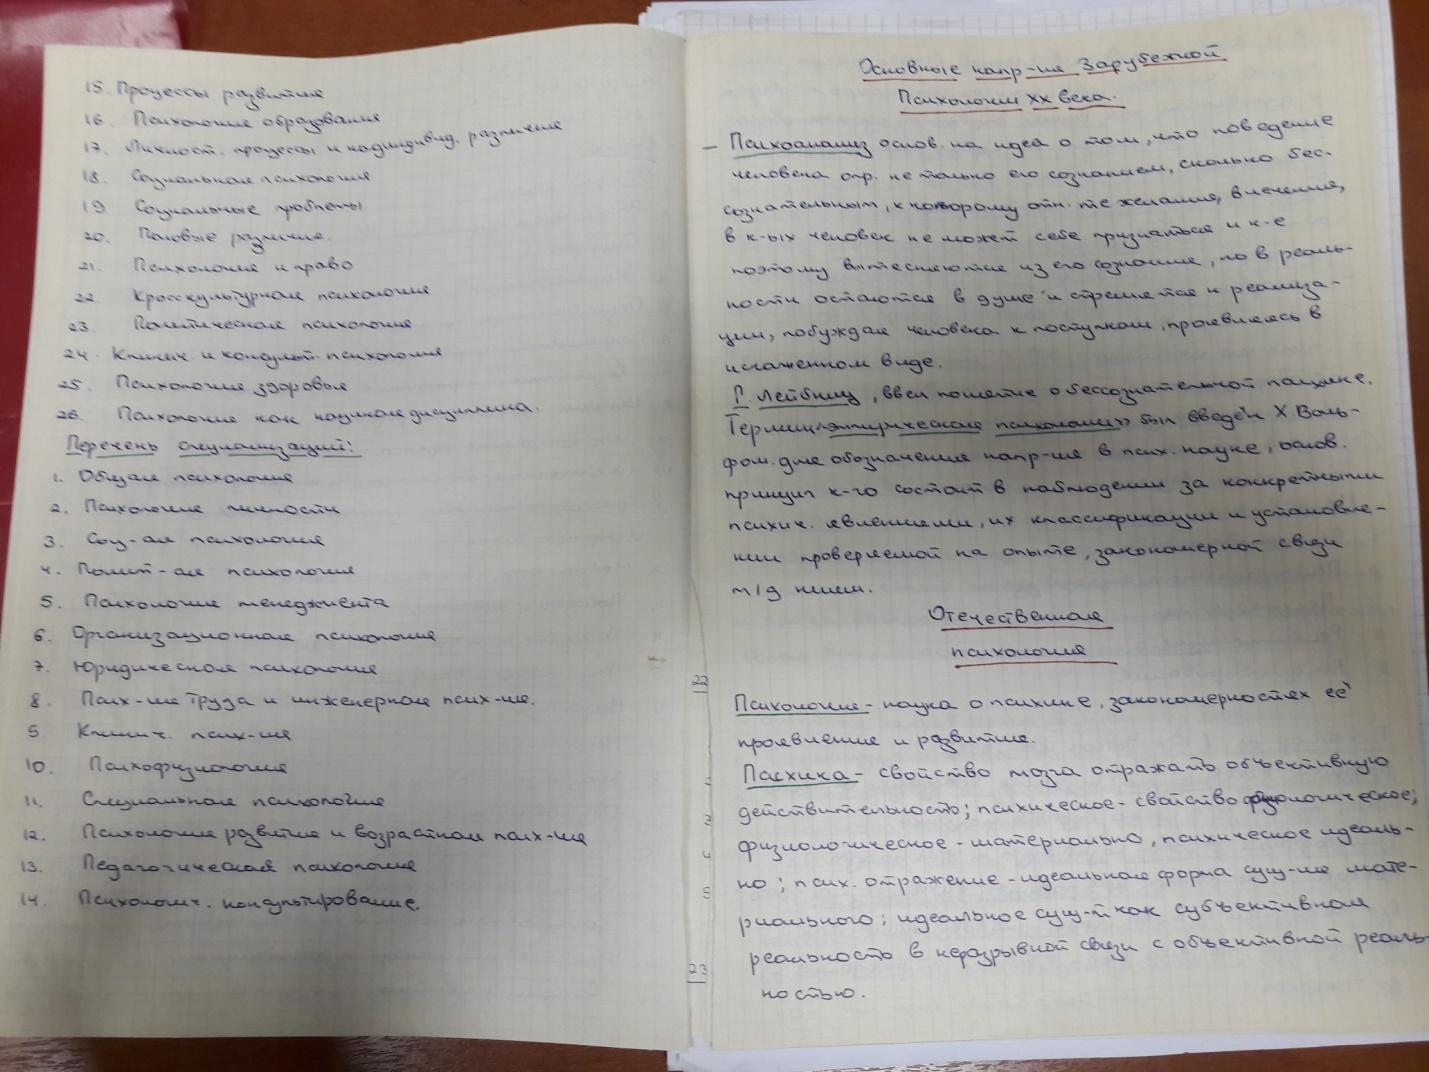 15. Процессы развития
16. Психология образования
17. Личност. процессы и индивид. различия
18. Социальная психология
19. Социальные проблемы
20. Половые различия.
21. Психология и право
22. Кросскультурная психология
23. Политическая психология
24. Клинич. и консульт. психология
25. Психология здоровья
26. Психология как научная дисциплина.
Перечень специализаций:
1. Общая психология
2. Психология личности
3. Соц-ая психология
4. Полит-ая психология
5. Психология менеджмента
6. Организационная психология
7. Юридическая психология
8. Псих-ия труда и инженерная псих-ия.
9. Клинич. псих-ия
10. Психофизиология
11. Специальная психология
12. Психология развития и возрастная псих-ия
13. Педагогическая психология
14. Психологич. консультирование.
Основные напр-ия Зарубежной
Психологии XX века.
— Психоанализ основ. на идеа о том, что поведение
человека опр. не только его сознанием, сколько бес-
сознательным, к которому отн. те желания, влечения,
в к-ых человек не может себе признаться и к-е
поэтому вытесняются из его сознания, но в реаль-
ности остаются в душе и стремятся к реализа-
ции, побуждая человека к поступкам, проявляясь в
искаженном виде.
Г. Лейбниц, ввел понятие о бессознательной психике.
Термин «эмпирическая психология» был введён Х Воль-
фом для обозначения напр-ия в псих. науке, основ.
принцип к-го состоит в наблюдении за конкретными
психич. явлениями, их классификации и установле-
нии проверяемой на опыте, закономерной связи
м/д ними.
Отечественная
психология
22
Психология - наука о психике, закономерностях её
проявления и развития.
Психика - свойство мозга отражать объективную
действительность; психическое - свойство физиологическое;
физиологическое - материально, психическое идеаль-
но; псих. отражение - идеальная форма сущ-ия мате-
риального; идеальное сущ-т как субъективная
реальность в неразрывной связи с объективной реаль-
ностью.
3
4
5
23